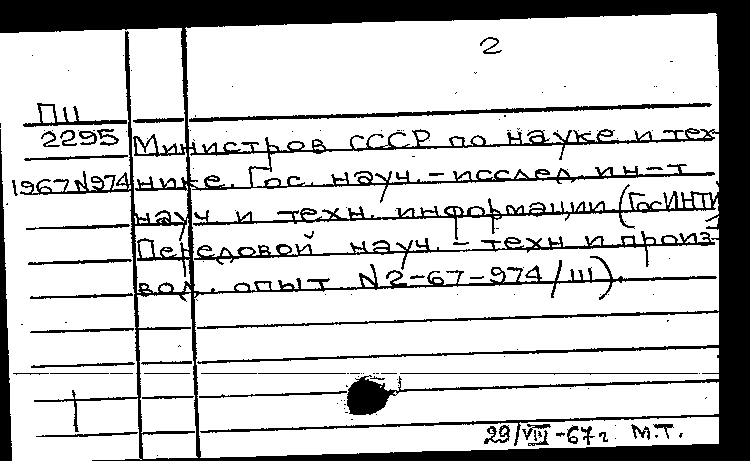 2
П11
2295 Министров СССР по науке и тех-
1967 N974 нике. Гос. науч.-исслед. ин-т
науч и техн. информации (ГосИНТИ
Передовой науч.-техн и произ-
вод. опыт N2-67-974/III).
29/VIII-67г. М.Т.